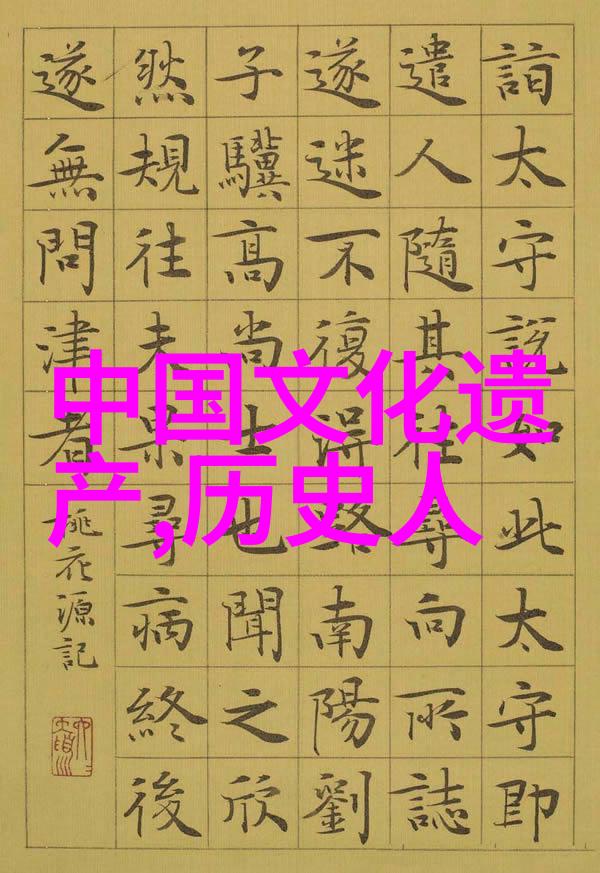 詣太守說如此太守即
遣人隨其往尋向所誌
遂迷不復得路南陽劉
子驥高尚士也聞之欣
然規往未果尋病終後
遂無問津者
桃花源記
中国文化遗
产,历史人